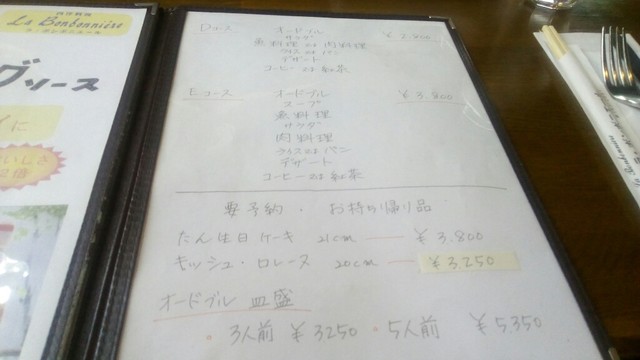 La Bonbonnière
グソース
に
Dコース オードブル ¥2,800
サラダ
魚料理 or 肉料理
ライス or パン
デザート
コーヒー or 紅茶
Eコース オードブル ¥3,800
スープ
魚料理
サラダ
肉料理
ライス or パン
デザート
コーヒー or 紅茶
要予約・お持ち帰り品
たん生日ケーキ 21cm ¥3.800
キッシュ・ロレーヌ 20cm ¥3.250
オードブル 皿盛
・3人前 ¥3250 ・5人前 ¥5350